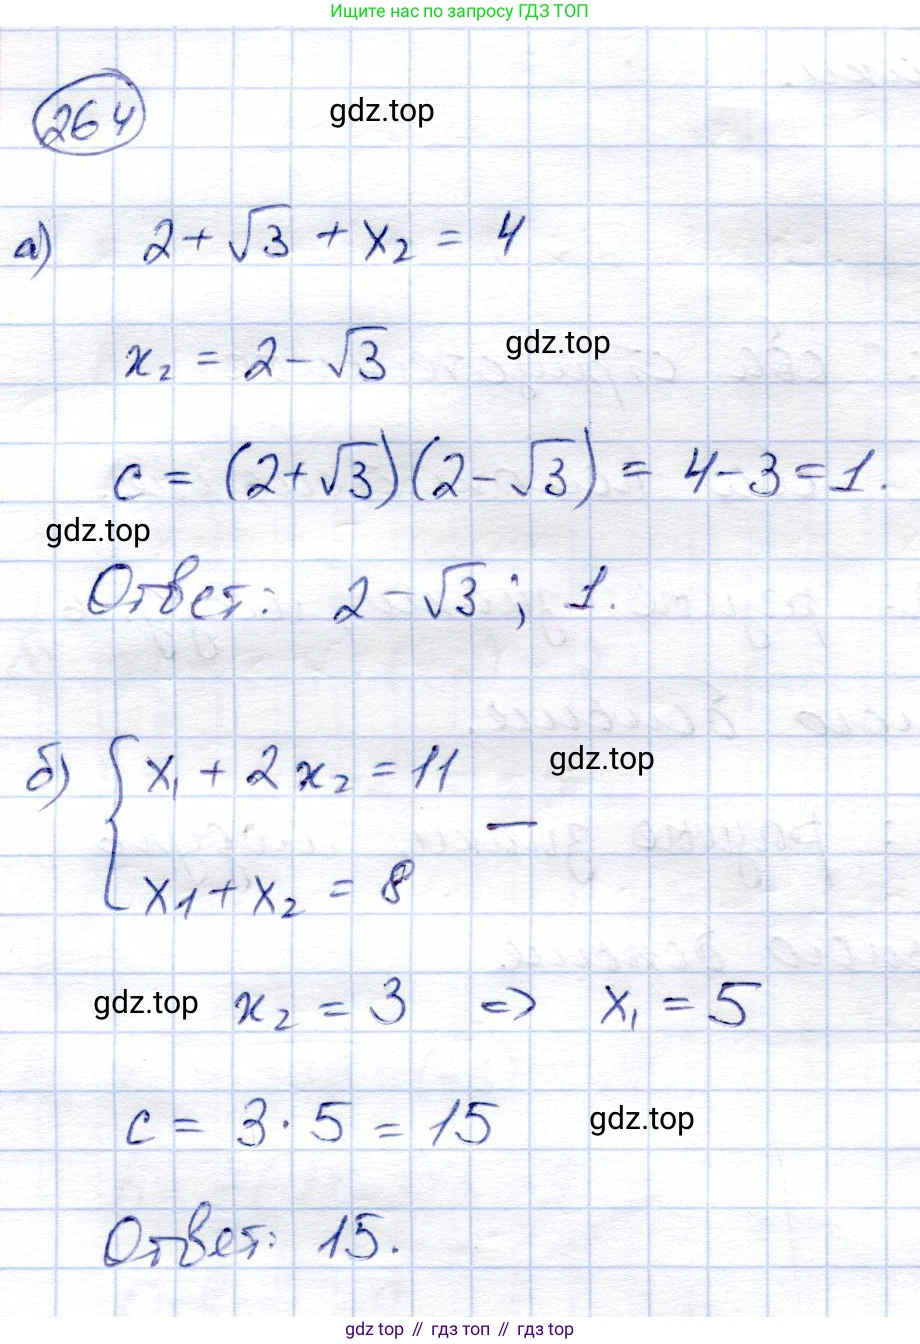 Ищите нас по запросу ГДЗ ТОП
264
gdz.top
а) 2 + √3 + x₂ = 4
x₂ = 2 - √3
gdz.top
c = (2+√3)(2-√3) = 4-3=1.
gdz.top
Ответ: 2-√3; 1.
б) { x₁ + 2x₂ = 11
gdz.top
—
x₁ + x₂ = 8
gdz.top
x₂ = 3 => x₁ = 5
c = 3·5 = 15
gdz.top
Ответ: 15.
gdz top // гдз топ // gdz top